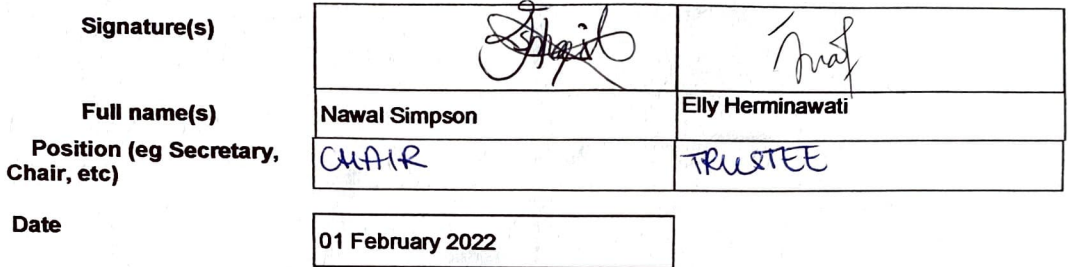 Signature(s)
Full name(s) Nawal Simpson Elly Herminawati
Position (eg Secretary, CHAIR TRUSTEE
Chair, etc)
Date 01 February 2022